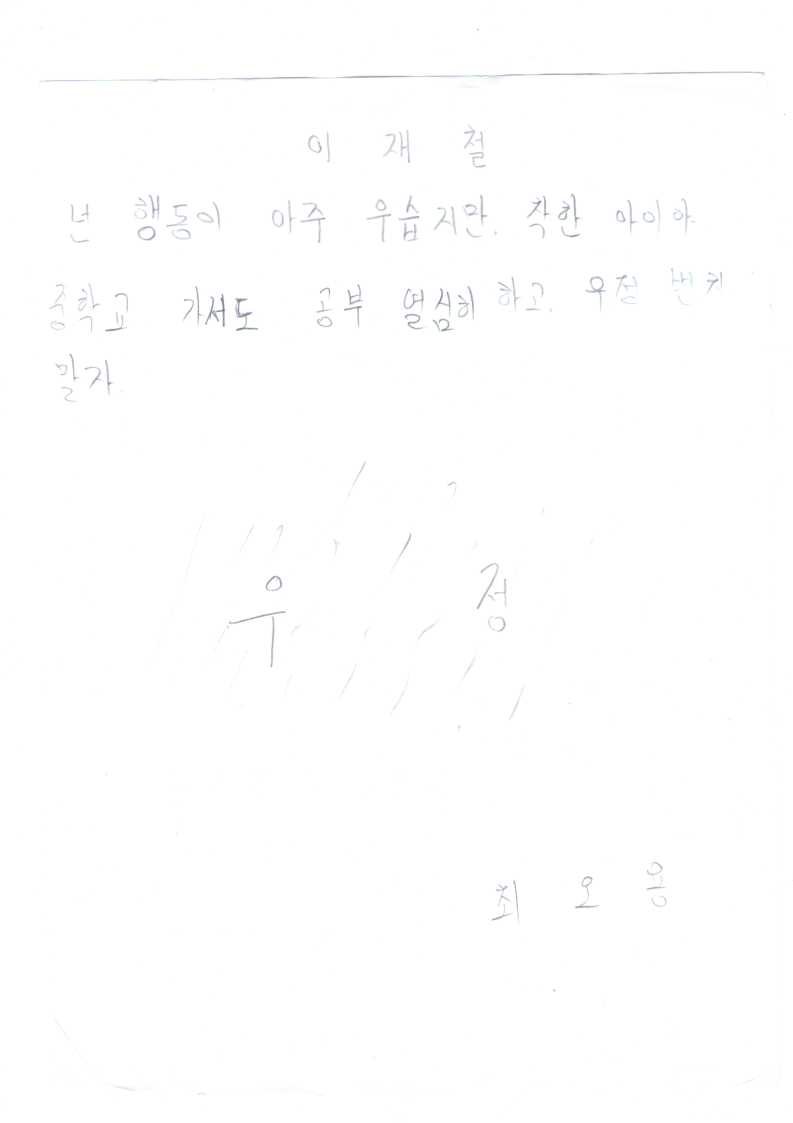 이 재 철
넌 행동이 아주 우습지만. 착한 아이야.
중학교 가서도 공부 열심히 하고. 우정 변치
말자.
우 정
최 오 용